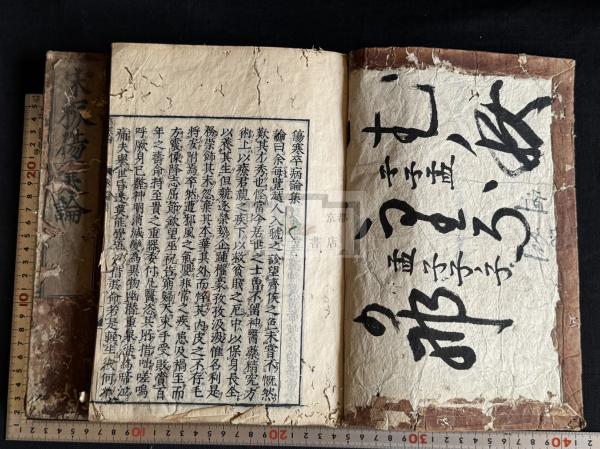 傷寒卒病論集
論曰余每覽越人入虢之診望齊侯之色未嘗不慨然
歎其才秀也怪當今居世之士曾不留神醫藥精究方
術上以療君親之疾下以救貧賤之厄中以保身長全
以養其生但競逐榮勢企踵權豪孜孜汲汲惟名利是
務崇飾其末忽棄其本華其外而悴其內皮之不存毛
將安附焉卒然遭邪風之氣嬰非常之疾患及禍至而
方震慄降志屈節欽望巫祝告窮歸天束手受敗賚百
年之壽命持至貴之重器委付凡醫恣其所措咄嗟嗚
呼厥身已斃神明消滅變為異物幽潛重泉徒為啼泣
痛夫舉世昏迷莫能覺悟不惜其命若是輕生彼何榮
宋板傷寒論
子子孟
孟子子子
邪
京都
書店
10
20
10
20
30
40